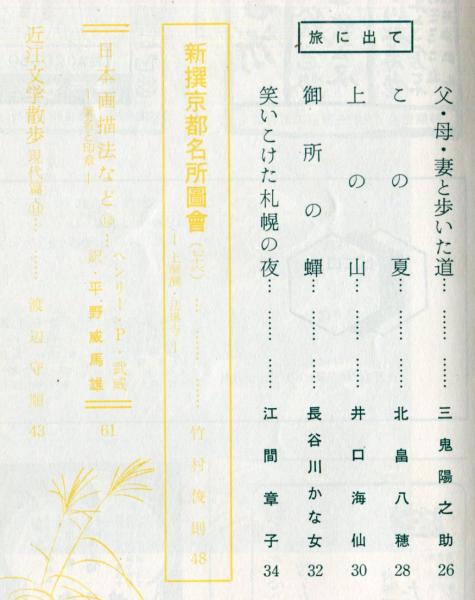 旅に出て
父・母・妻と歩いた道……………三鬼陽之助 26
この夏……………北畠八穂 28
上の山……………井口海仙 30
御所の蟬……………長谷川かな女 32
笑いこけた札幌の夜……………江間章子 34
新撰京都名所圖會
竹村俊則 48
日本画描法など
ヘンリー・P・武威
訳・平野威馬雄 61
近江文学散歩 現代篇
渡辺守順 43